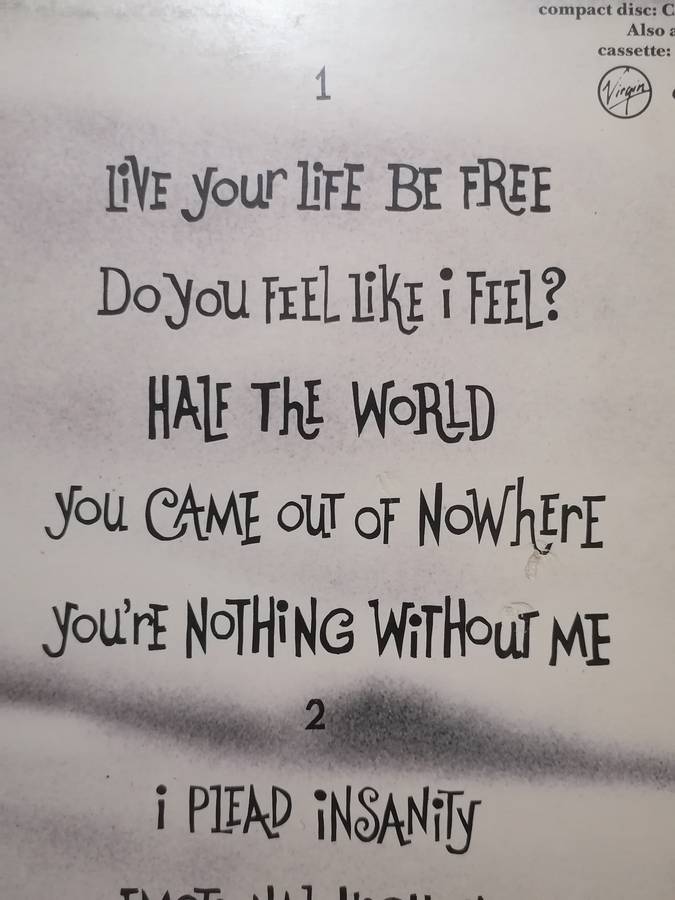 compact disc: C
Also a
cassette:
Virgin
1
LiVE your LiFE BE FREE
Do you FEEL LiKE i FEEL?
HALF ThE WoRLD
you CAME ouT oF NoWhErE
you'rE NoTHiNG WiTHouT ME
2
i PLEAD iNSANiTy